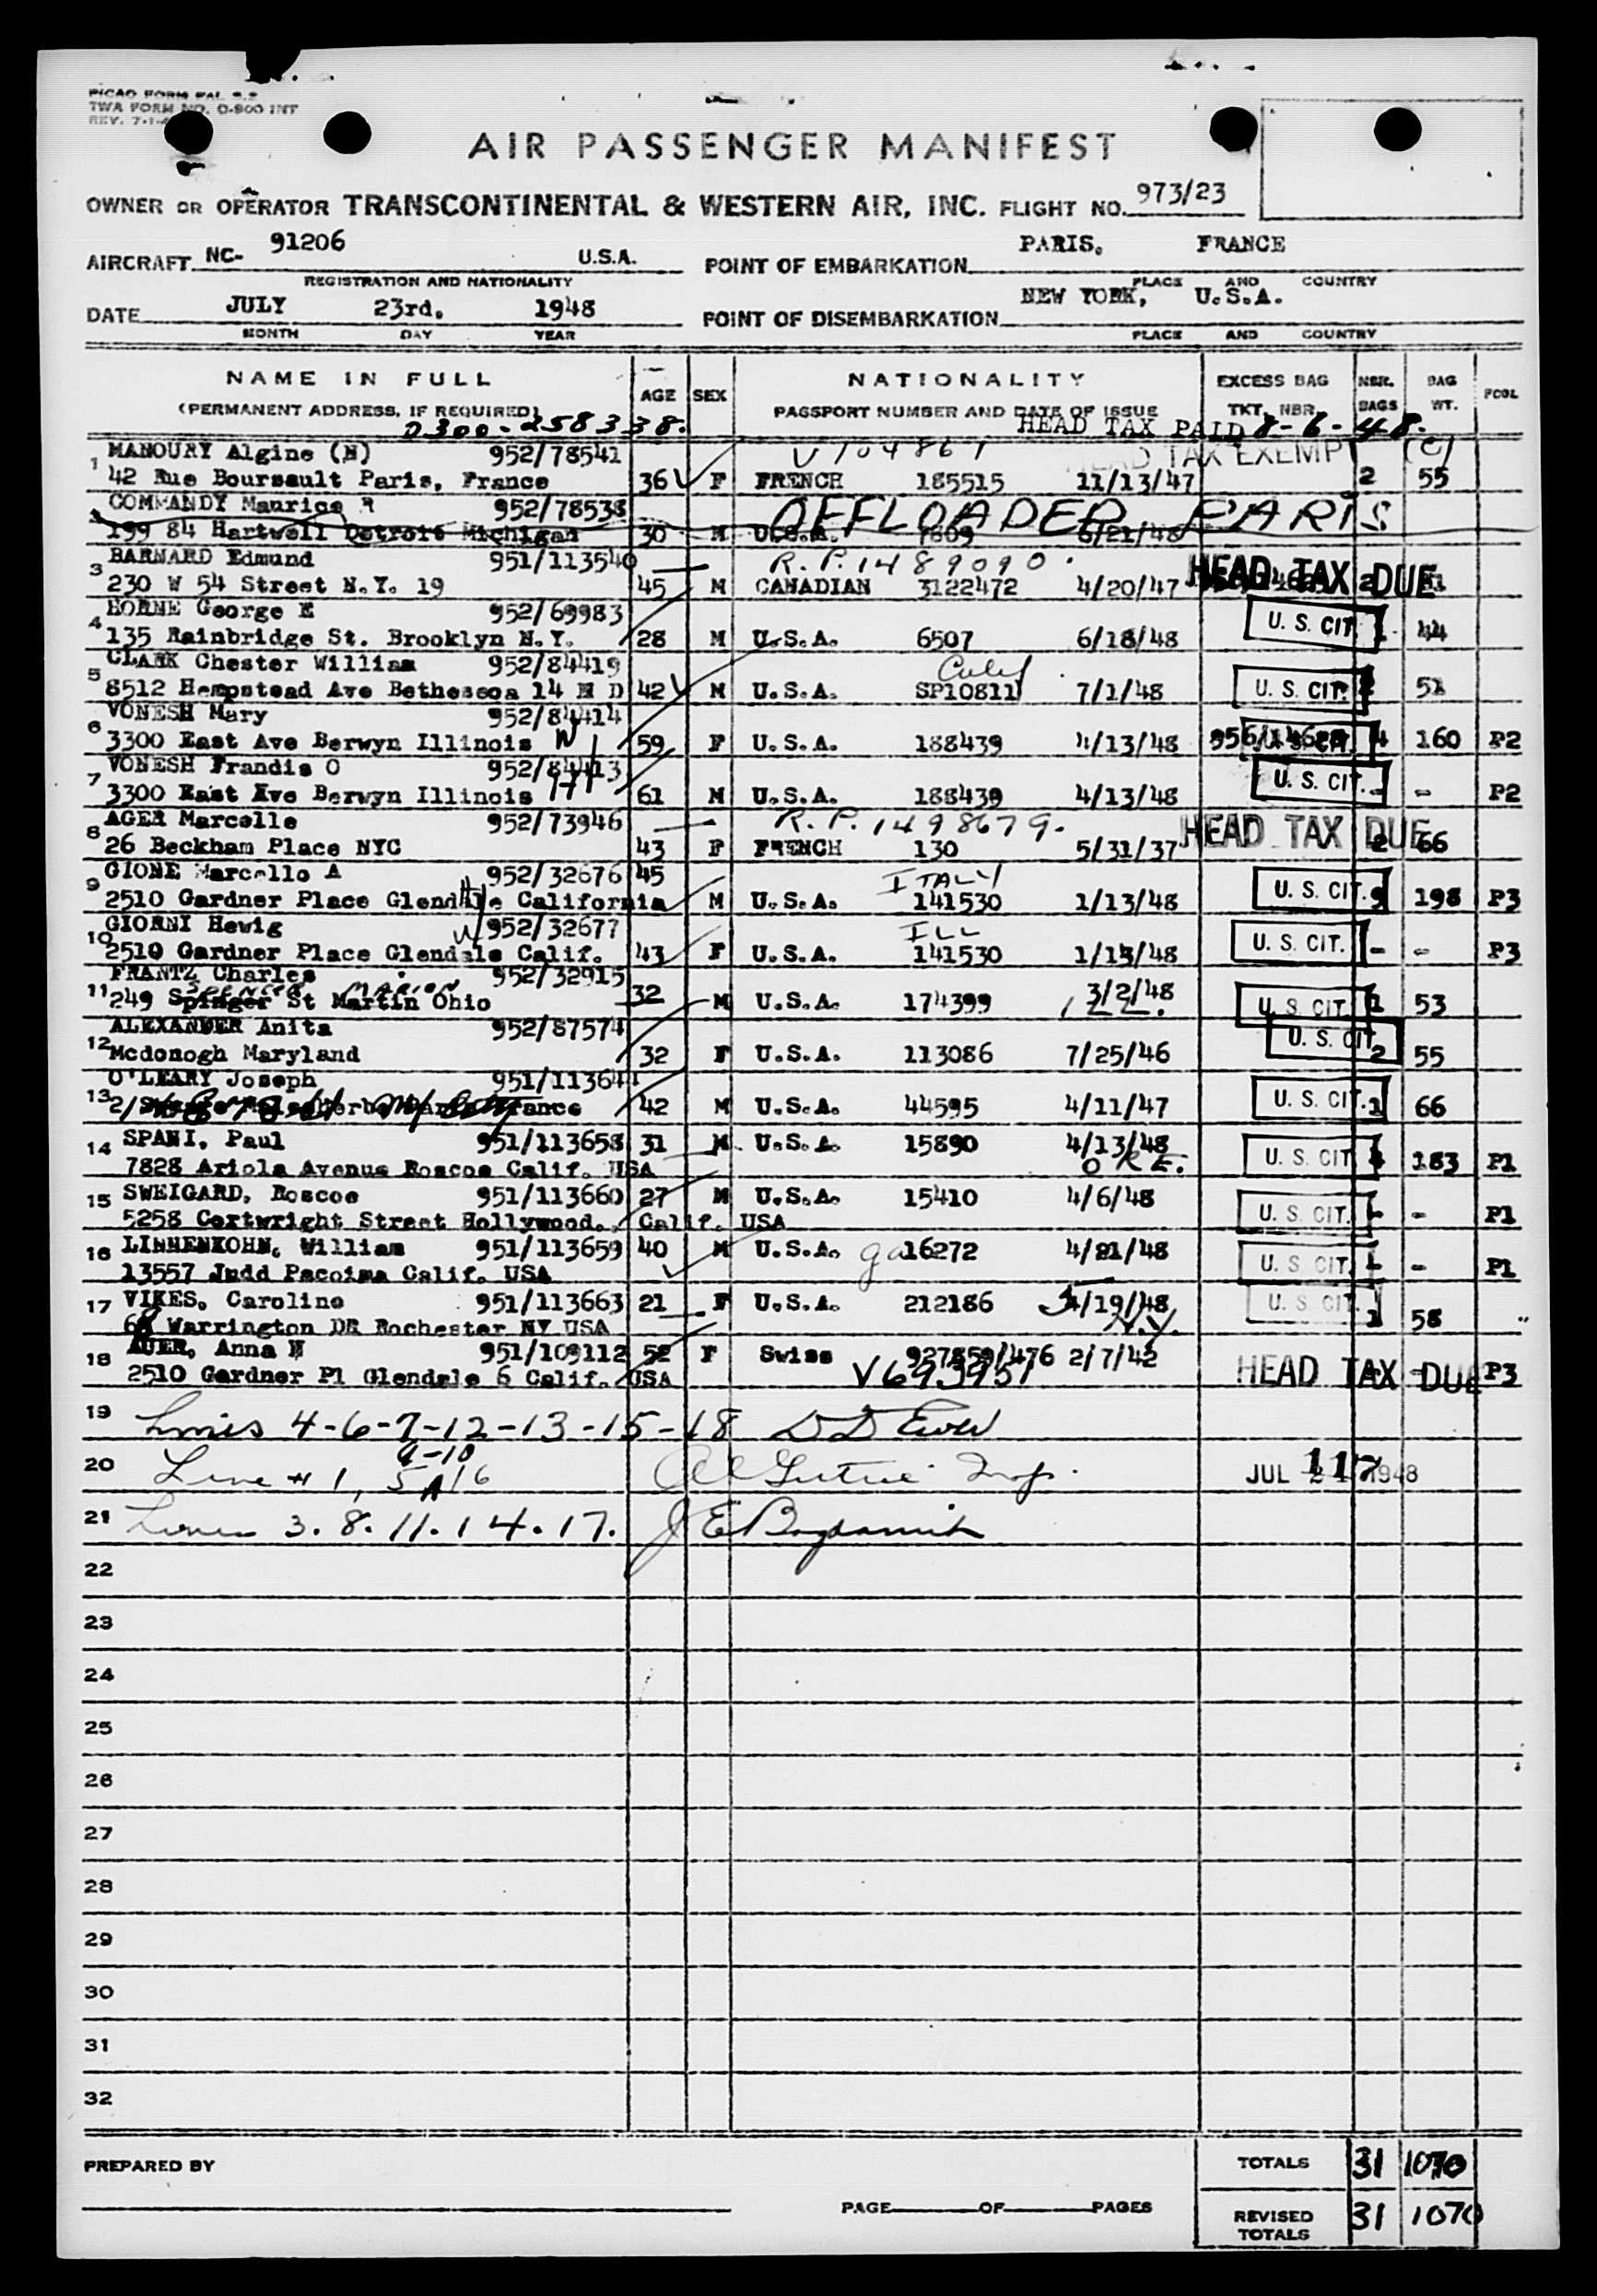 PICAO FORM PAL 2.2
TWA FORM NO. O-800 INT
REV. 7-1-
AIR PASSENGER MANIFEST
OWNER OR OPERATOR TRANSCONTINENTAL & WESTERN AIR, INC. FLIGHT NO. 973/23
AIRCRAFT NC- 91206 U.S.A. POINT OF EMBARKATION PARIS, FRANCE
REGISTRATION AND NATIONALITY PLACE AND COUNTRY
DATE JULY 23rd, 1948 POINT OF DISEMBARKATION NEW YORK, U.S.A.
MONTH DAY YEAR PLACE AND COUNTRY
NAME IN FULL AGE SEX NATIONALITY EXCESS BAG NBR. BAG PCOL
(PERMANENT ADDRESS, IF REQUIRED) PASSPORT NUMBER AND DATE OF ISSUE TKT, NBR. BAGS WT.
0300-258338. HEAD TAX PAID 8-6-48.
1 MANOURY Algine (N) 952/78541 V 104867 HEAD TAX EXEMPT (C)
42 Rue Boursault Paris, France 36 F FRENCH 185515 11/13/47 2 55
COMMANDY Maurice R 952/78538 OFFLOADED PARIS
199 84 Hartwell Detroit Michigan 30 M U.S.A. 1809 6/21/48
3 BARNARD Edmund 951/113540 R.P. 1489090. HEAD TAX DUE
230 W 54 Street N.Y. 19 45 M CANADIAN 3122472 4/20/47 2
4 HORNE George E 952/69983 U. S. CIT.
135 Rainbridge St. Brooklyn N.Y. 28 M U.S.A. 6507 6/18/48 44
5 CLARK Chester William 952/84419
8512 Hempstead Ave Bethescoa 14 M D 42 M U.S.A. SP10811 7/1/48 U. S. CIT. 51
6 VONESH Mary 952/84414
3300 East Ave Berwyn Illinois W 59 F U.S.A. 188439 4/13/48 U. S. CIT. 4 160 P2
7 VONESH Frandis O 952/84413 U. S. CIT.
3300 East Ave Berwyn Illinois H 61 M U.S.A. 188439 4/13/48 - - P2
8 AGER Marcelle 952/73946 R.P. 1498679. HEAD TAX DUE
26 Beckham Place NYC 43 F FRENCH 130 5/31/37 2 66
9 GIONE Marcello A 952/32676 45 ITALY
2510 Gardner Place Glendale California H M U.S.A. 141530 1/13/48 U. S. CIT. 9 198 P3
10 GIORNI Hewig W 952/32677 ILL
2510 Gardner Place Glendale Calif. 43 F U.S.A. 141530 1/13/48 U. S. CIT. - - P3
11 FRANTZ Charles 952/32915
SPENCER MARION
249 Spinger St Martin Ohio 32 M U.S.A. 174399 3/2/48 ILL. U. S. CIT. 1 53
12 ALEXANDER Anita 952/87574 U. S. CIT.
Mcdonogh Maryland 32 F U.S.A. 113086 7/25/46 2 55
13 O'LEARY Joseph 951/113641
France 42 M U.S.A. 44595 4/11/47 U. S. CIT. 1 66
14 SPANI, Paul 951/113658 31 M U.S.A. 15890 4/13/48 U. S. CIT. 183 P1
7828 Ariola Avenue Roscoe Calif. USA ORE.
15 SWEIGARD, Roscoe 951/113660 27 M U.S.A. 15410 4/6/48 U. S. CIT. - - P1
5258 Cortwright Street Hollywood., Calif. USA
16 LINHENKOHN, William 951/113659 40 M U.S.A. ga 16272 4/21/48 U. S. CIT. - - P1
13557 Judd Pacoima Calif. USA
17 VIKES, Caroline 951/113663 21 F U.S.A. 212186 4/19/48 U. S. CIT. 1 58
68 Warrington DR Rochester NY USA N.Y.
18 AUER, Anna N 951/109112 52 F Swiss 927859/476 2/7/42
2510 Gardner Pl Glendale 6 Calif. USA V693957 HEAD TAX DUE P3
19 Lines 4-6-7-12-13-15-18
9-10
20 Line # 1, 5 A 16 Insp. JUL 1948
21 Lines 3. 8. 11. 14. 17.
22
23
24
25
26
27
28
29
30
31
32
PREPARED BY TOTALS 31 1070
PAGE OF PAGES REVISED TOTALS 31 1070